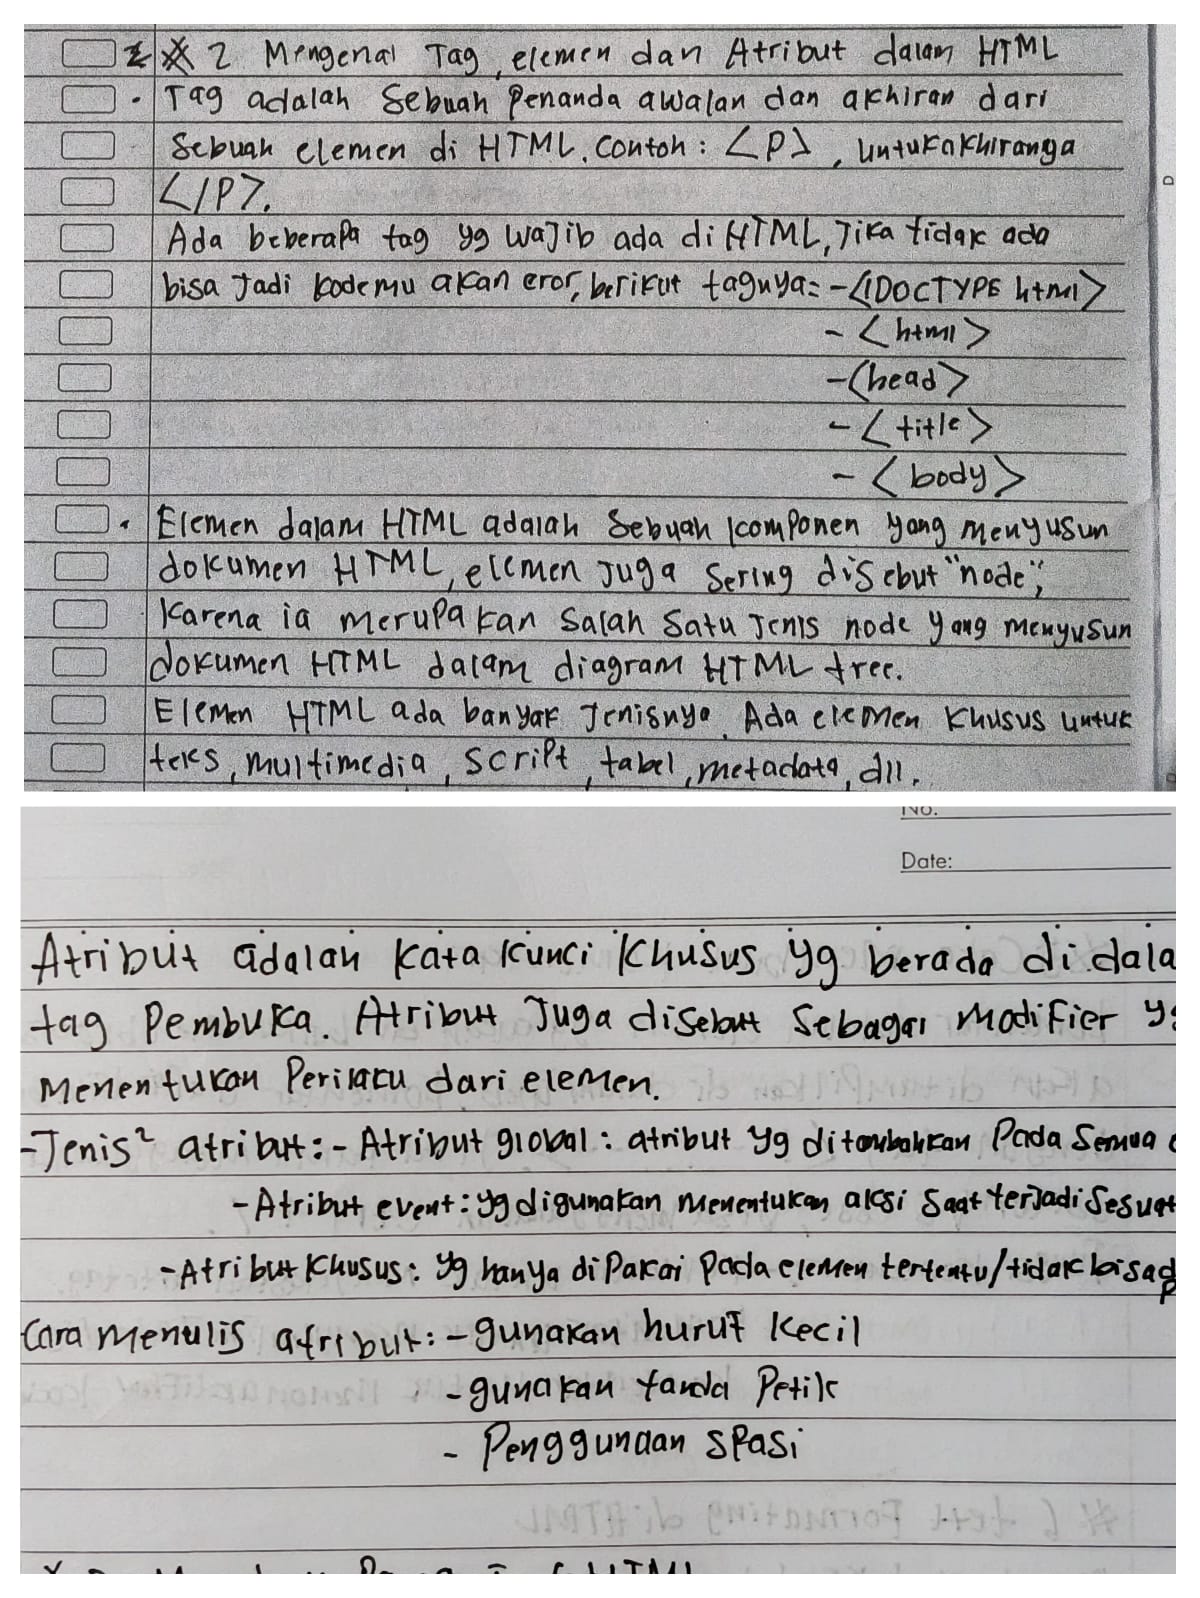 # 2 Mengenal Tag, elemen dan Atribut dalam HTML
• Tag adalah Sebuah Penanda awalan dan akhiran dari
Sebuah elemen di HTML. Contoh : <P>, untuk akhiranga
</P>.
Ada beberapa tag yg wajib ada di HTML, Jika tidak ada
bisa Jadi kodemu akan eror, berikut tagnya: - <!DOCTYPE html>
- <html>
- <head>
- <title>
- <body>
• Elemen dalam HTML adalah Sebuah komponen yang menyusun
dokumen HTML, elemen Juga Sering disebut "node",
Karena ia merupakan Salah Satu Jenis node yang menyusun
dokumen HTML dalam diagram HTML tree.
Elemen HTML ada banyak Jenisnya. Ada elemen Khusus untuk
teks, multimedia, script, tabel, metadata, dll.
No.
Date:
Atribut adalah Kata Kunci Khusus yg berada di dala
tag Pembuka. Atribut Juga disebut Sebagai Modifier
Menentukan Perilaku dari elemen.
- Jenis² atribut: - Atribut global : atribut yg ditambahkan Pada Semua
- Atribut event : yg digunakan menentukan aksi Saat terjadi Sesuat
- Atribut Khusus : yg hanya di Pakai Pada elemen tertentu/tidak bisa
Cara menulis atribut: - gunakan huruf kecil
- gunakan tanda Petik
- Penggunaan SPasi